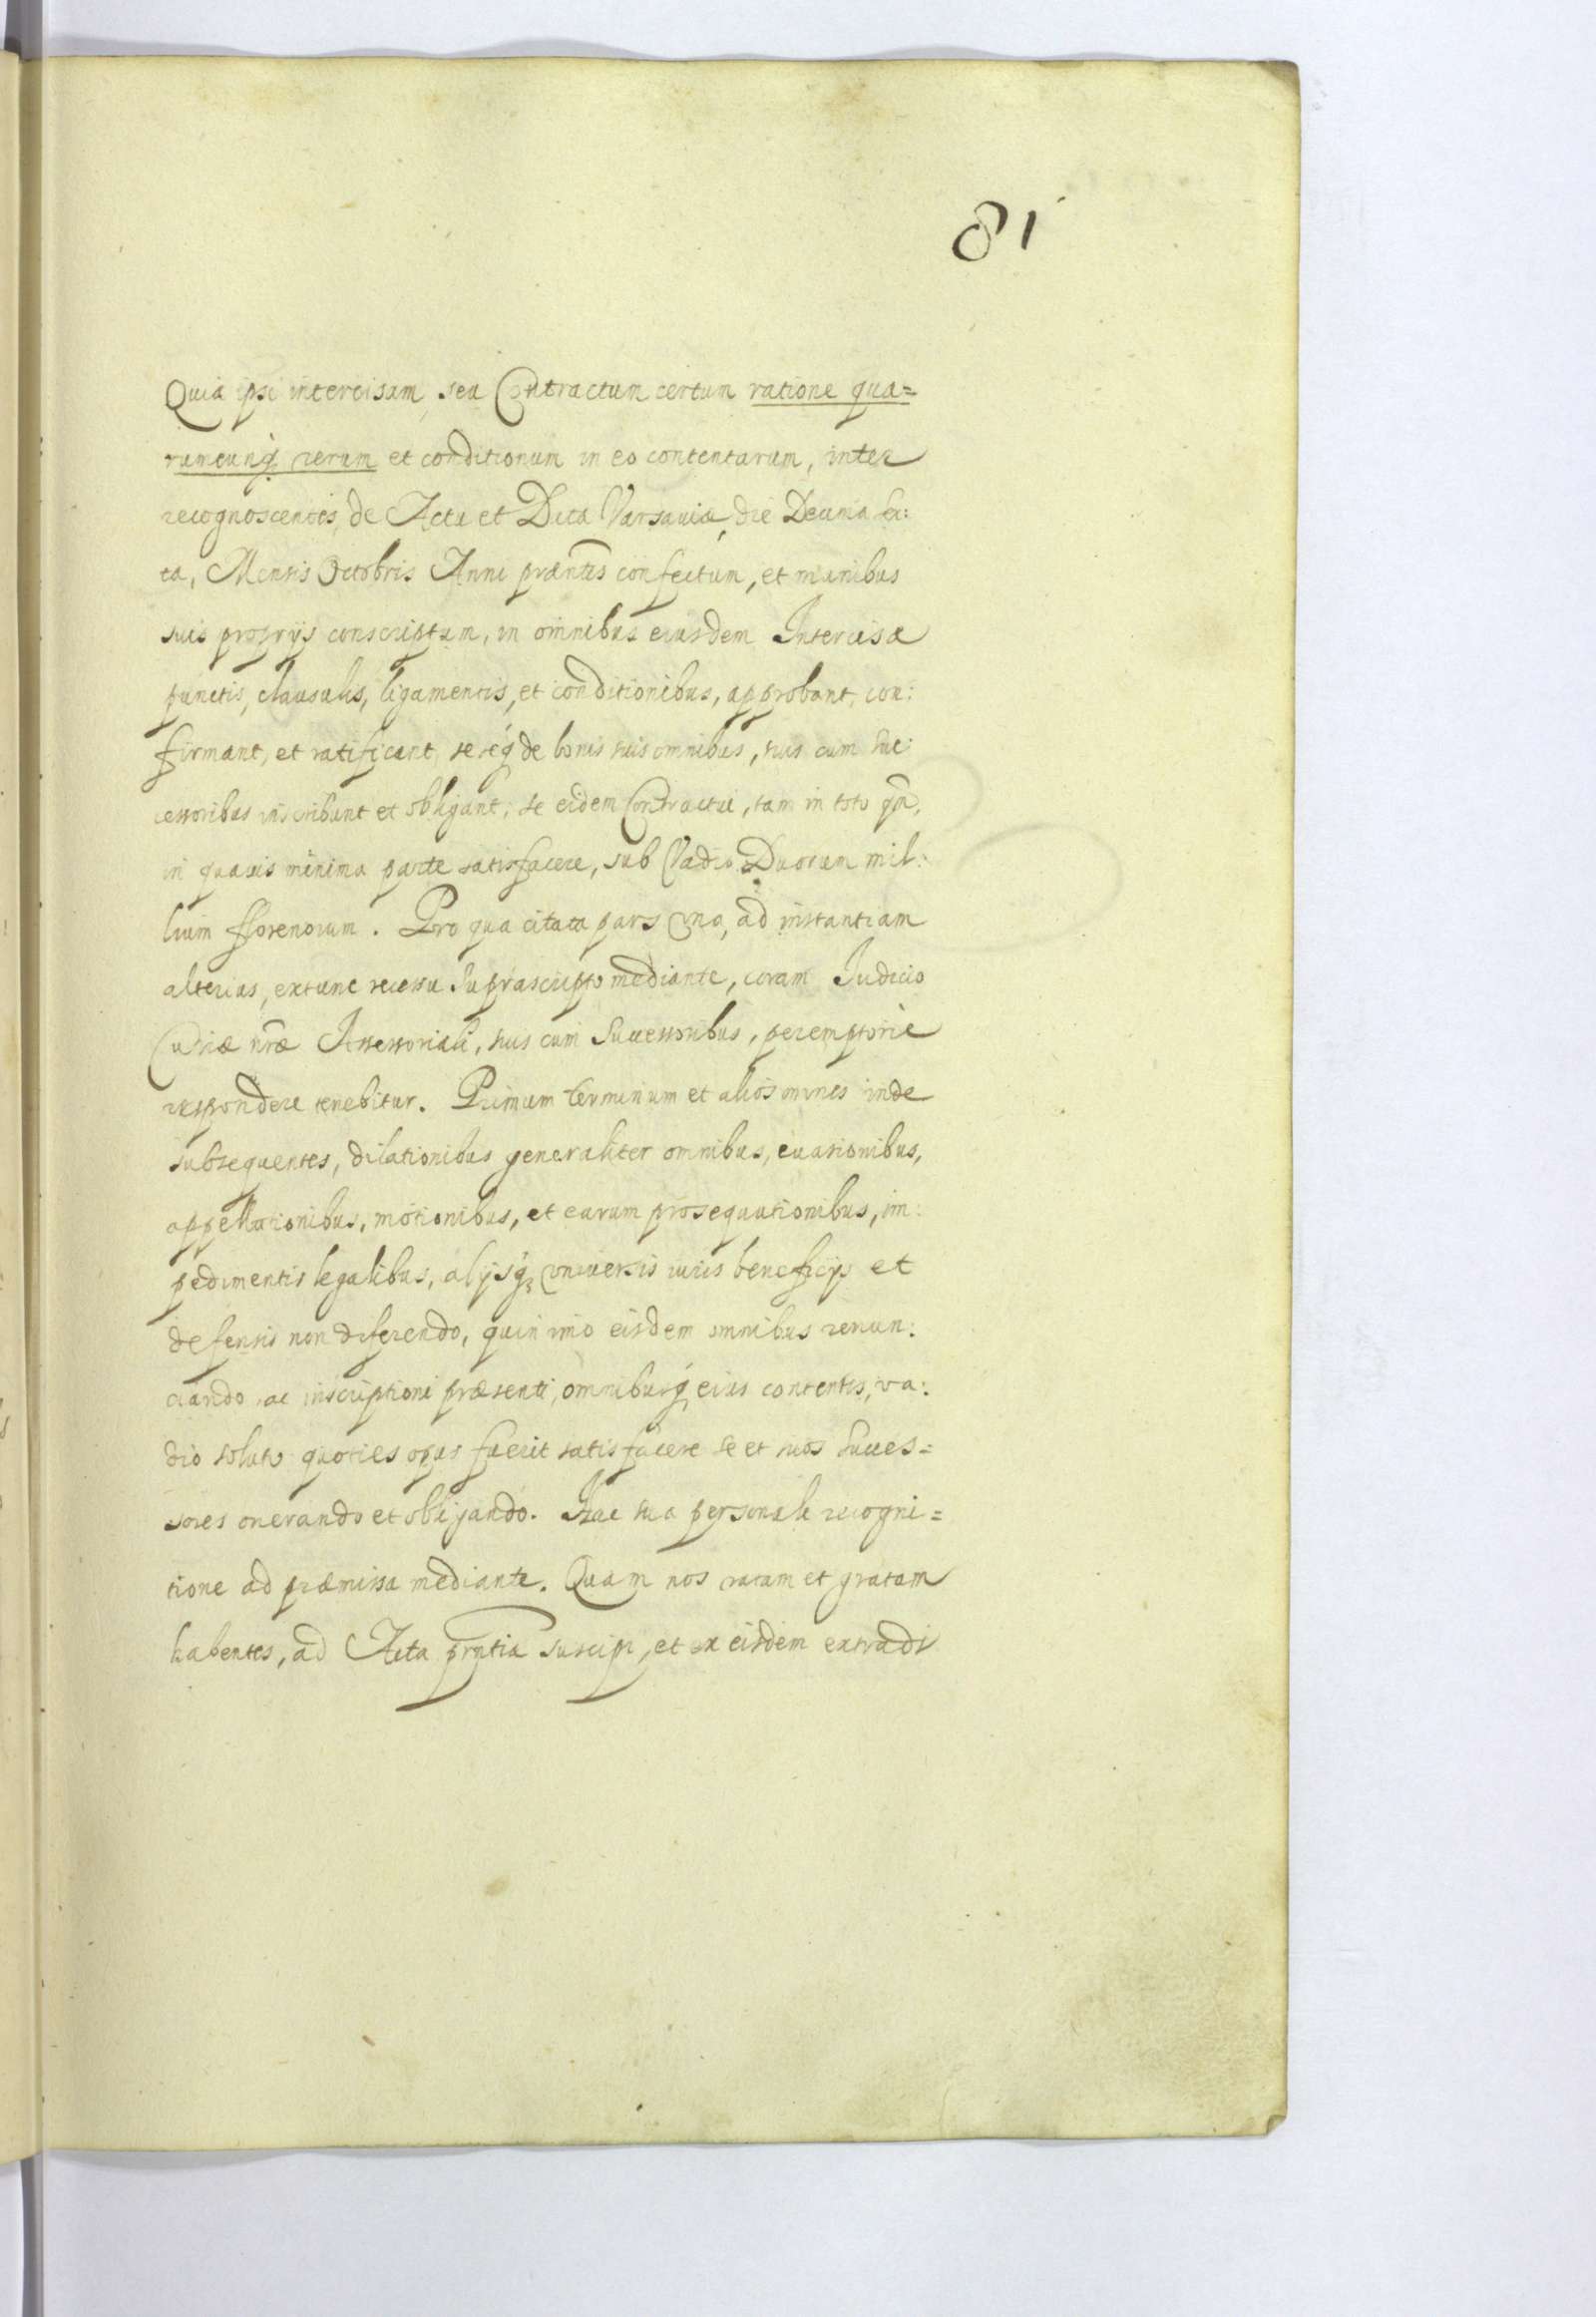 81
Quia ipsi intercisam, seu Contractum certum ratione qua=
rumcunq rerum et conditionum in eo contentarum, inter
recognoscentes, de Actu et Data Varsaviæ, die Decima sex:
ta, Mensis Octobris Anni præntis confectum, et manibus
suis proprijs conscriptum, in omnibus eiusdem Intercisæ
punctis, clausulis, ligamentis, et conditionibus, approbant, con:
firmant, et ratificant, seseq de bonis suis omnibus, suis cum suc:
cessoribus inscribunt et obligant, se eidem Contractui, tam in toto qm,
in quavis minima parte satisfacere, sub Vadio Duorum mil:
lium fflorenorum. Pro qua citata pars una, ad instantiam
alterius, extunc recessu suprascripto mediante, coram Judicio
Curiæ nræ Assessoriali, suis cum Successoribus, peremptorie
respondere tenebitur. Primum terminum et alios omnes inde
subsequentes, dilationibus generaliter omnibus, evasionibus,
appellationibus, motionibus, et earum prosequutionibus, im:
pedimentis legalibus, alijsq universis iuris beneficijs et
defensis non diferendo, quin imo eisdem omnibus renun:
ciando, ac inscriptioni præsenti, omnibusq eius contentis, va:
dio soluto quoties opus fuerit satisfacere se et suos succes=
sores onerando et obligando. Hac sua personali recogni=
tione ad præmissa mediante. Quam nos ratam et gratam
habentes, ad Acta prntia suscipi, et ex eisdem extradi